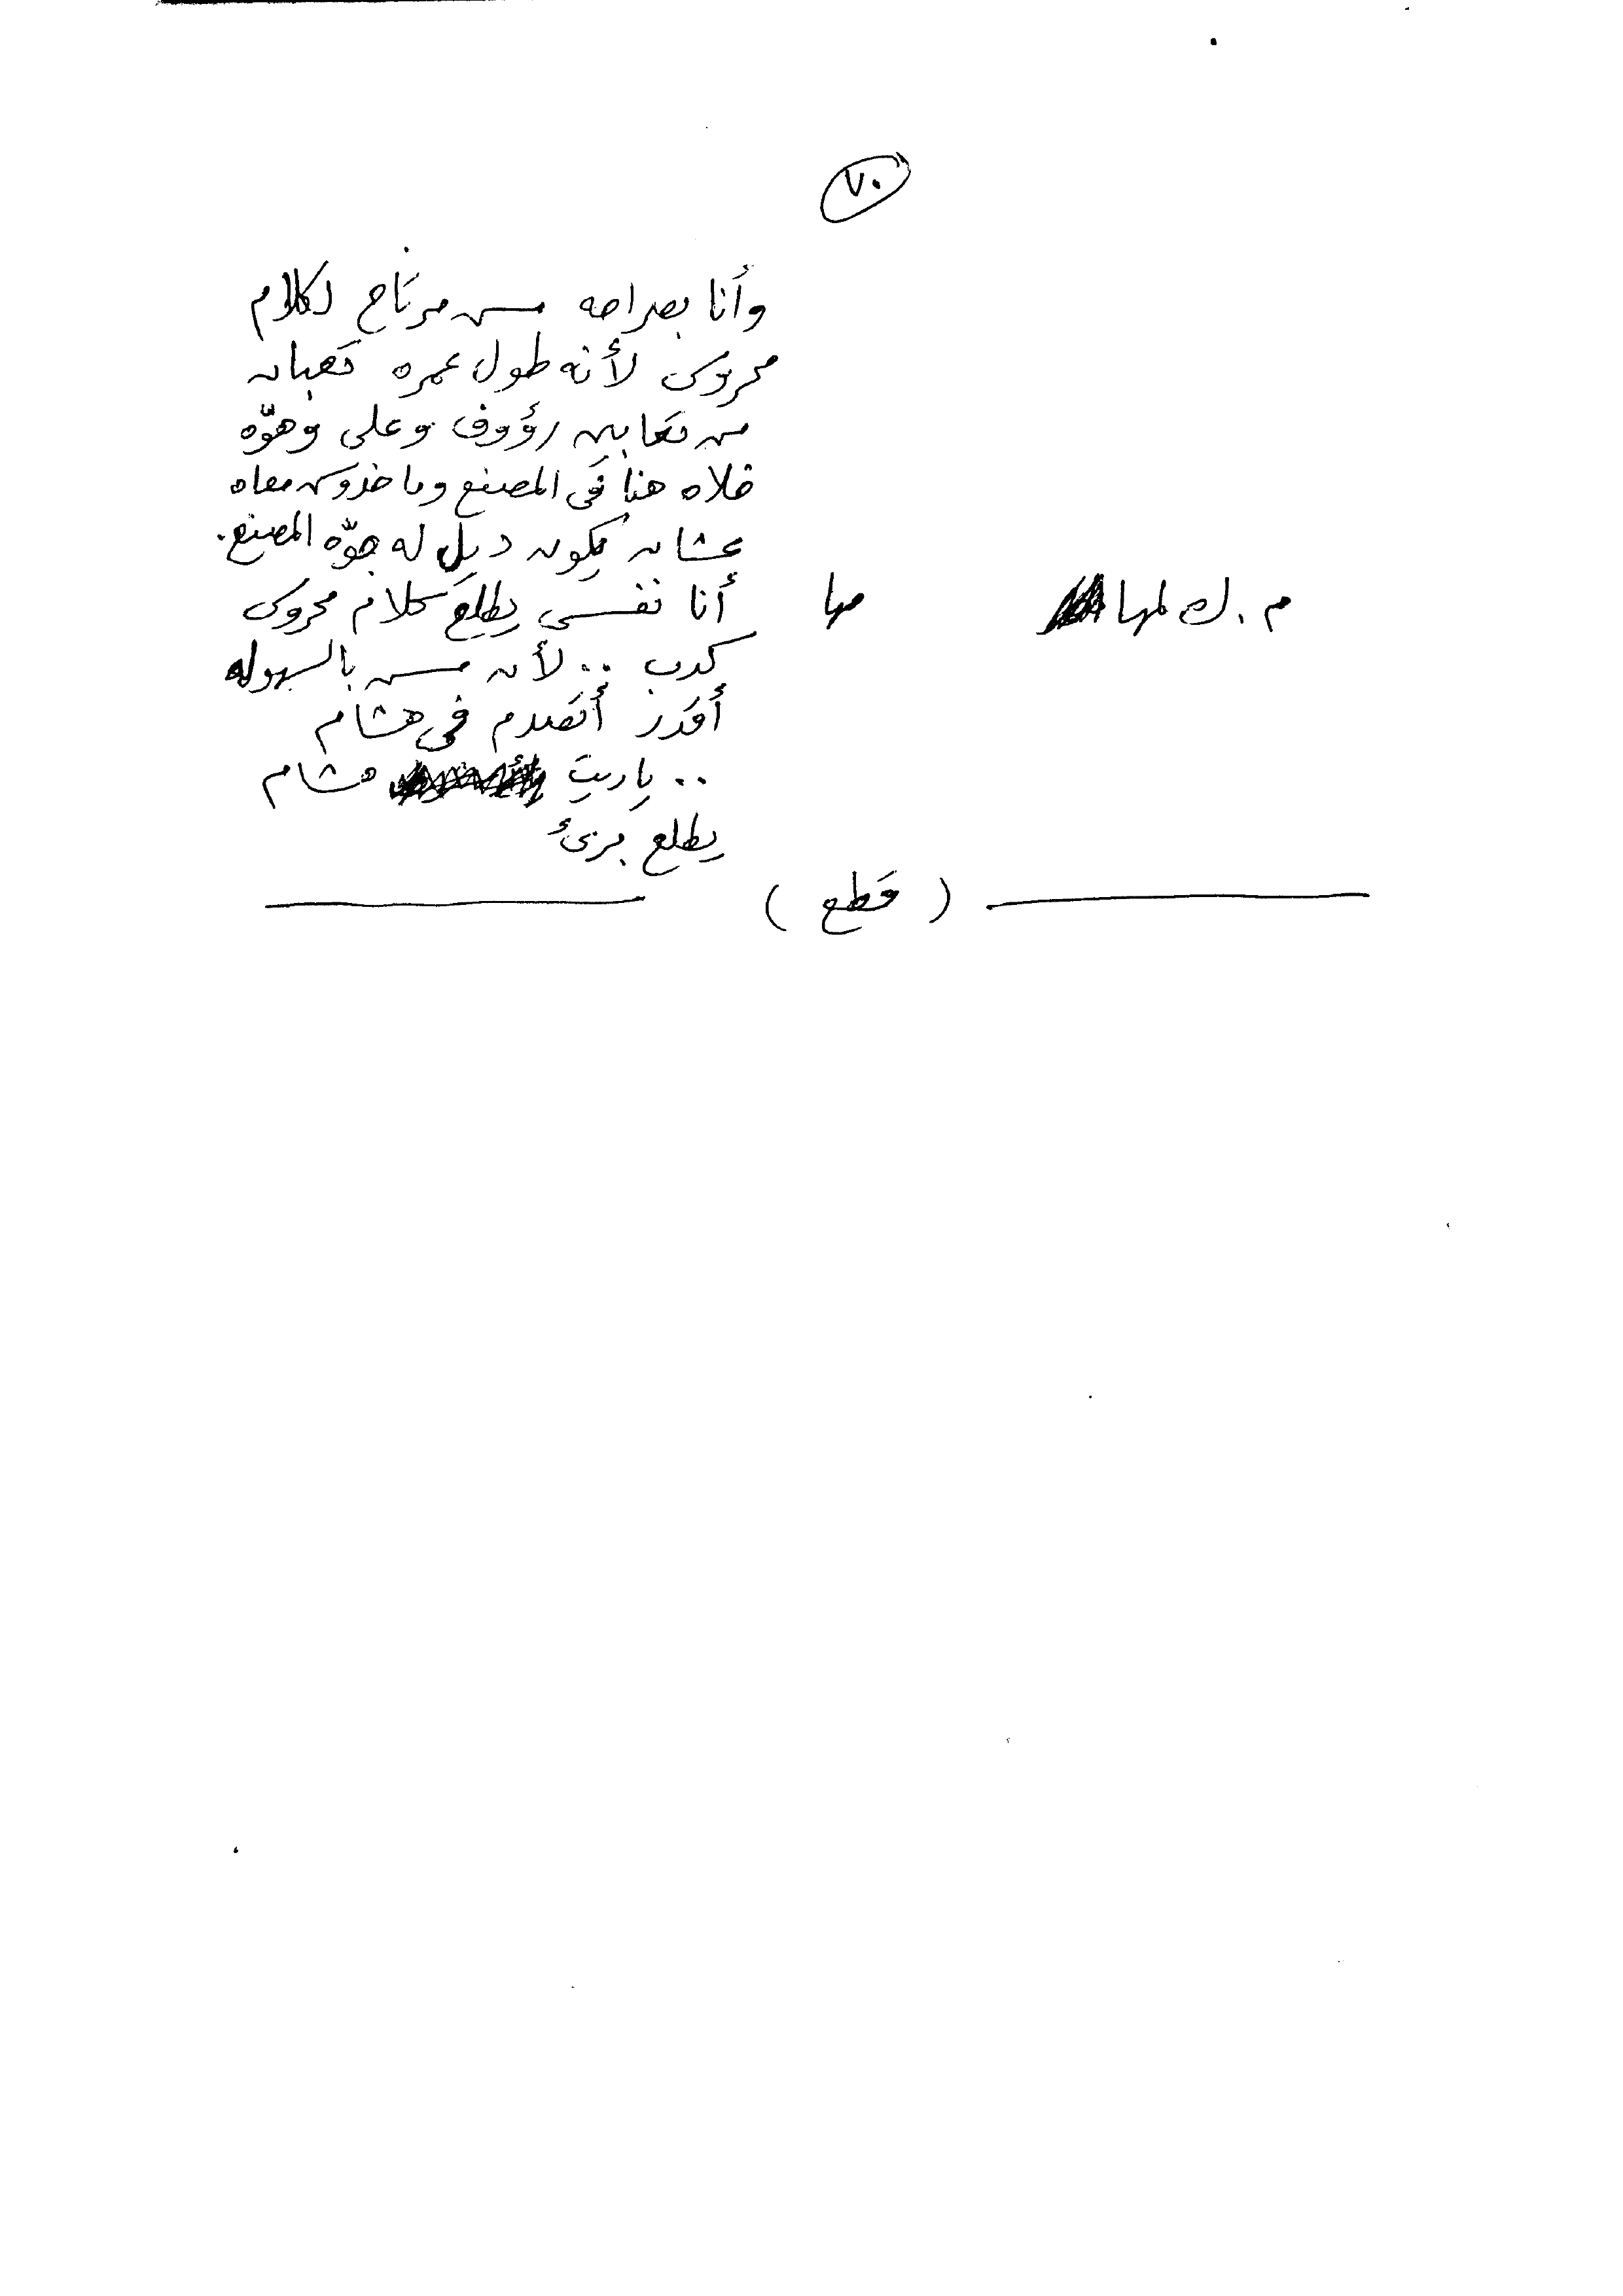 ٧٠
وأنا بصراحه مش مرتاح لكلام
محروس لأنه طول عمره تعبان
من تعابين رؤوف وعلى وهوّه
خلاه هنا فى المصنع وماخدوش معاه
عشان يكون ديل له جوّه المصنع.
م.ك لمها مها أنا نفسى يطلع كلام محروس
كدب .. لأن مش بالسهوله
أقدر أتصدم فى هشام
.. ياريت هشام
يطلع برئ
( قطع )